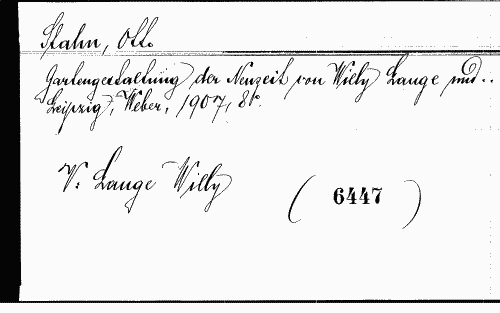 Stahn, Otto
Gartengestaltung der Neuzeit von Willy Lange und..
Leipzig, Weber, 1907, 8°.
V: Lange Willy
( 6447 )